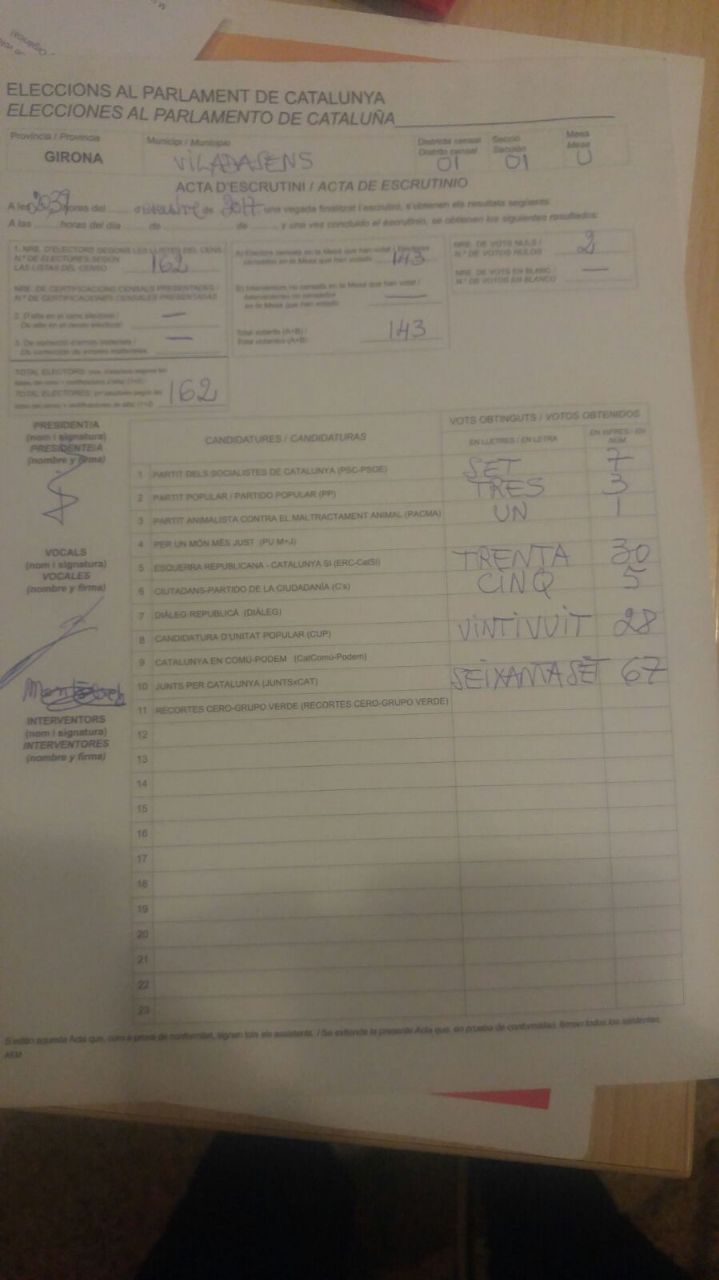 ELECCIONS AL PARLAMENT DE CATALUNYA
ELECCIONES AL PARLAMENTO DE CATALUÑA
Província / Provincia
GIRONA
Municipi / Municipio
VILADASENS
Districte censal
Distrito censal
01
Secció
Sección
01
Mesa
Mesa
U
ACTA D'ESCRUTINI / ACTA DE ESCRUTINIO
A les 20:39 hores del de 2017 una vegada finalitzat l'escrutini, s'obtenen els resultats següents:
A las horas del día de de , y una vez concluido el escrutinio, se obtienen los siguientes resultados:
1. NRE. D'ELECTORS SEGONS LES LLISTES DEL CENS
N.º DE ELECTORES SEGÚN
LAS LISTAS DEL CENSO
162
NRE. DE CERTIFICACIONS CENSALS PRESENTADES /
N.º DE CERTIFICACIONES CENSALES PRESENTADAS
2. D'alta en el cens electoral /
De alta en el censo electoral
—
3. De correcció d'errors materials /
De corrección de errores materiales
—
TOTAL ELECTORS
TOTAL ELECTORES
162
A) Electors censats en la Mesa que han votat / Electores
censados en la Mesa que han votado
143
B) Interventors no censats en la Mesa que han votat /
Interventores no censados
en la Mesa que han votado
—
Total votants (A+B) /
Total votantes (A+B)
143
NRE. DE VOTS NULS /
N.º DE VOTOS NULOS
2
NRE. DE VOTS EN BLANC /
N.º DE VOTOS EN BLANCO
—
PRESIDENT/A
(nom i signatura)
PRESIDENTE/A
(nombre y firma)
VOCALS
(nom i signatura)
VOCALES
(nombre y firma)
INTERVENTORS
(nom i signatura)
INTERVENTORES
(nombre y firma)
CANDIDATURES / CANDIDATURAS
VOTS OBTINGUTS / VOTOS OBTENIDOS
EN LLETRES / EN LETRA
EN XIFRES / EN NÚM.
1 PARTIT DELS SOCIALISTES DE CATALUNYA (PSC-PSOE) SET 7
2 PARTIT POPULAR / PARTIDO POPULAR (PP) TRES 3
3 PARTIT ANIMALISTA CONTRA EL MALTRACTAMENT ANIMAL (PACMA) UN 1
4 PER UN MÓN MÉS JUST (PUM+J)
5 ESQUERRA REPUBLICANA - CATALUNYA SÍ (ERC-CatSí) TRENTA 30
6 CIUTADANS-PARTIDO DE LA CIUDADANÍA (C's) CINQ 5
7 DIÀLEG REPUBLICÀ (DIÀLEG)
8 CANDIDATURA D'UNITAT POPULAR (CUP) VINTIVUIT 28
9 CATALUNYA EN COMÚ-PODEM (CatComú-Podem)
10 JUNTS PER CATALUNYA (JUNTSxCAT) SEIXANTASET 67
11 RECORTES CERO-GRUPO VERDE (RECORTES CERO-GRUPO VERDE)
12
13
14
15
16
17
18
19
20
21
22
23
S'estén aquesta Acta que, com a prova de conformitat, signen tots els assistents. / Se extiende la presente Acta que, en prueba de conformidad, firman todos los asistentes.